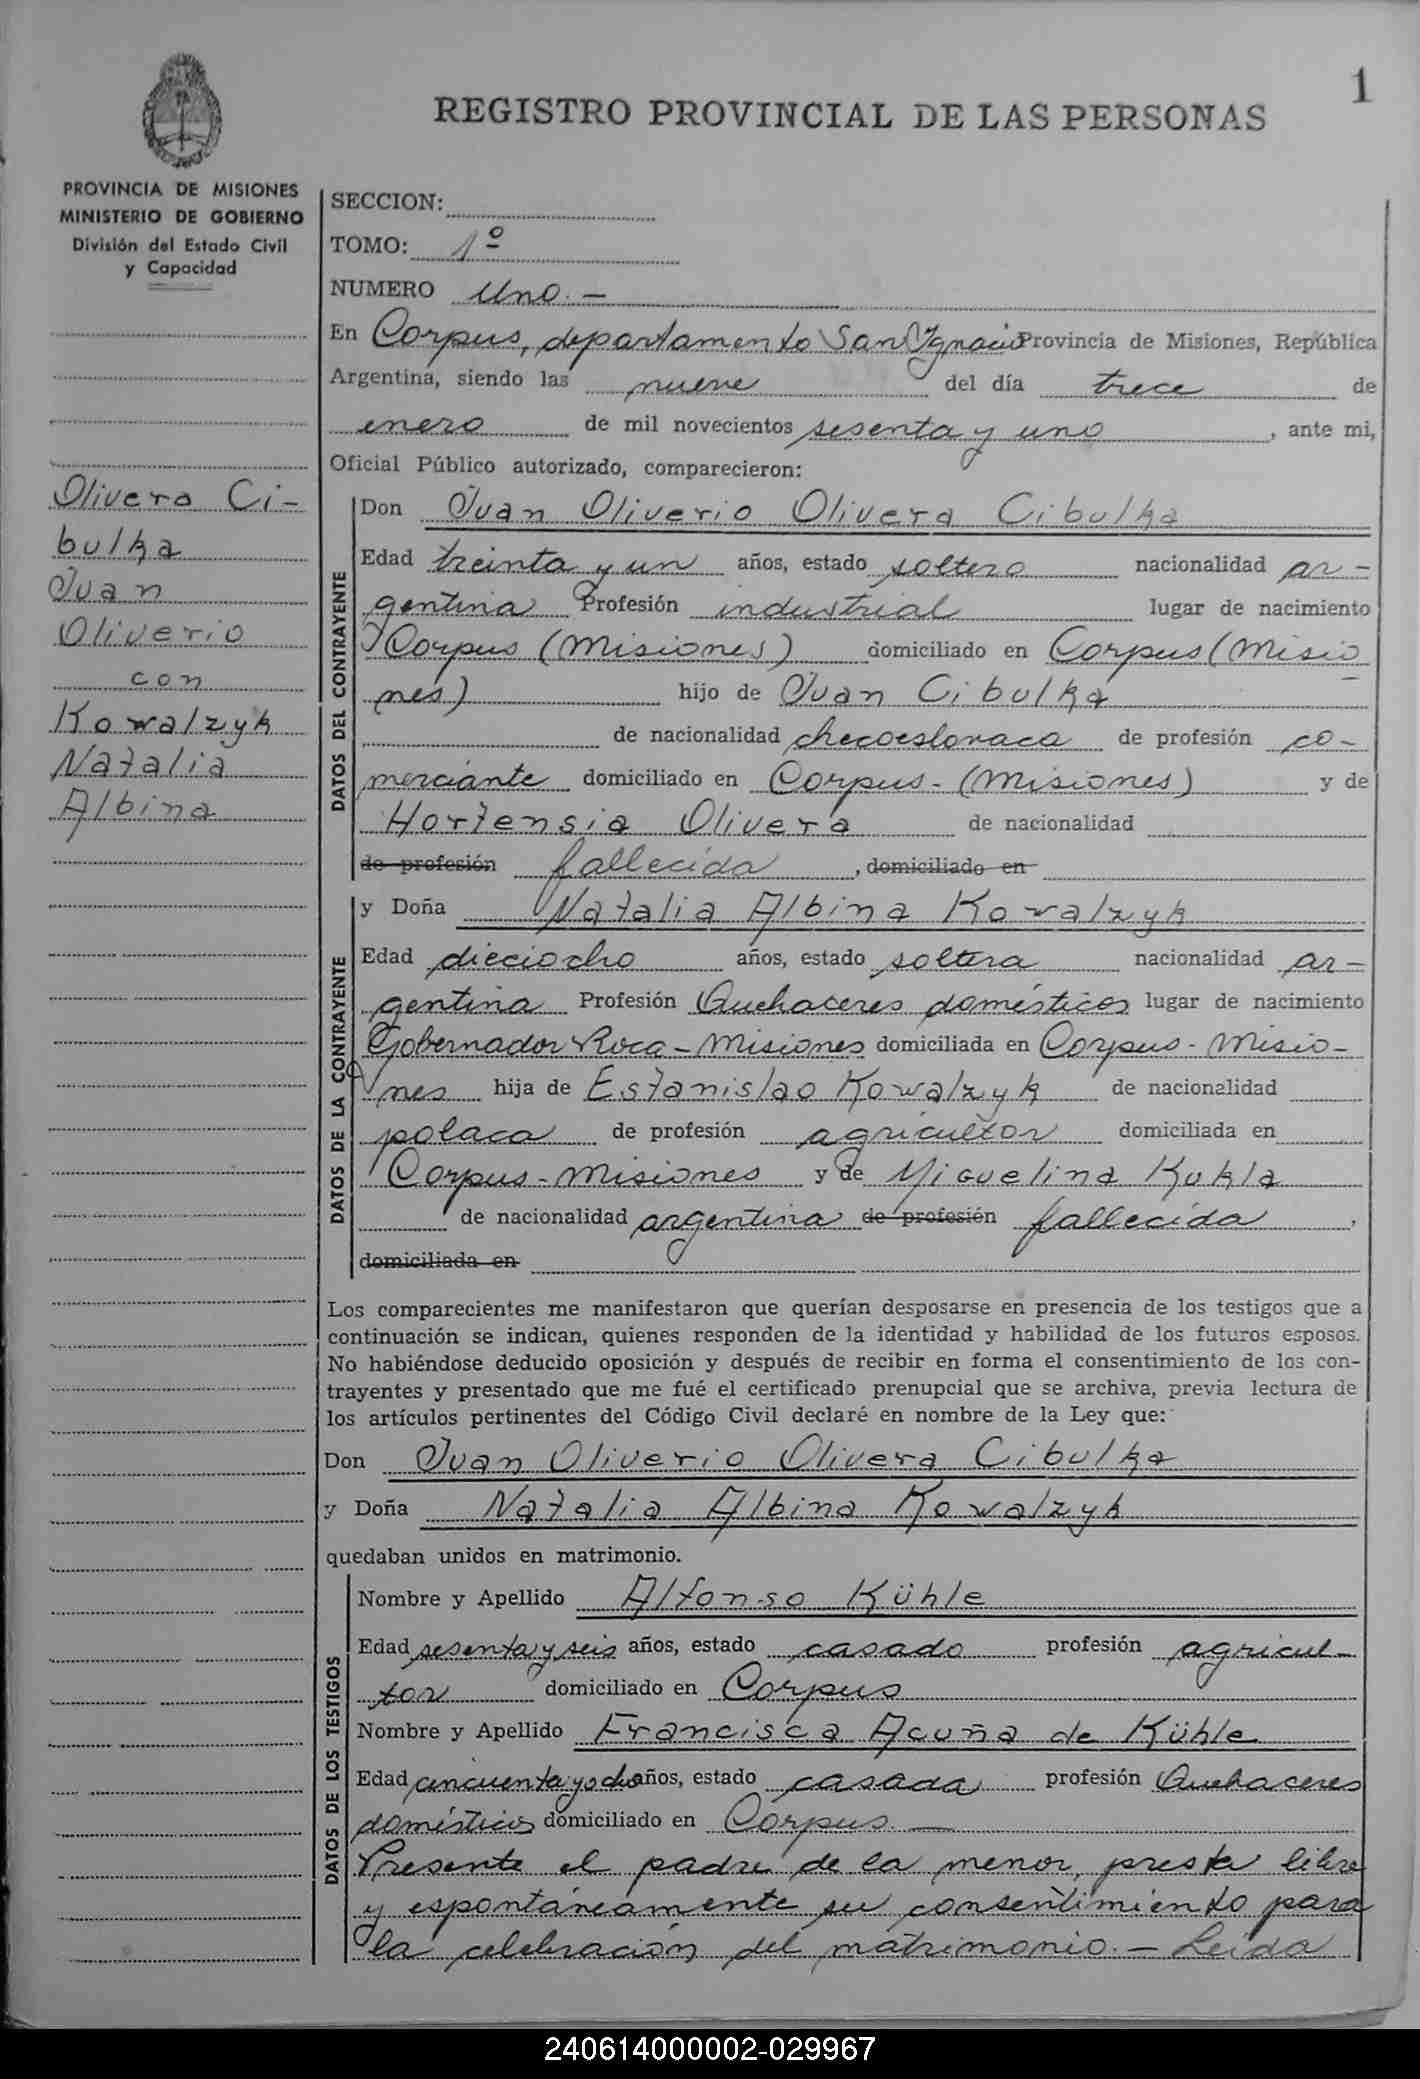 1
REGISTRO PROVINCIAL DE LAS PERSONAS
PROVINCIA DE MISIONES
MINISTERIO DE GOBIERNO
División del Estado Civil
y Capacidad
Olivera Ci-
bulka
Juan
Oliverio
con
Kowalzyk
Natalia
Albina
SECCION:
TOMO: 1º
NUMERO uno.-
En Corpus, departamento San Ignacio Provincia de Misiones, República
Argentina, siendo las nueve del día trece de
enero de mil novecientos sesenta y uno, ante mi,
Oficial Público autorizado, comparecieron:
DATOS DEL CONTRAYENTE
Don Juan Oliverio Olivera Cibulka
Edad treinta y un años, estado soltero nacionalidad ar-
gentina Profesión industrial lugar de nacimiento
Corpus (Misiones) domiciliado en Corpus (Misio
nes) hijo de Juan Cibulka
de nacionalidad checoeslovaca de profesión co-
merciante domiciliado en Corpus-(Misiones) y de
Hortensia Olivera de nacionalidad
de profesión fallecida, domiciliado en
DATOS DE LA CONTRAYENTE
y Doña Natalia Albina Kowalzyk
Edad dieciocho años, estado soltera nacionalidad ar-
gentina Profesión Quehaceres domésticos lugar de nacimiento
Gobernador Roca-Misiones domiciliada en Corpus-Misio-
nes hija de Estanislao Kowalzyk de nacionalidad
polaca de profesión agricultor domiciliada en
Corpus-Misiones y de Miguelina Kukla
de nacionalidad argentina de profesión fallecida,
domiciliada en
Los comparecientes me manifestaron que querían desposarse en presencia de los testigos que a
continuación se indican, quienes responden de la identidad y habilidad de los futuros esposos.
No habiéndose deducido oposición y después de recibir en forma el consentimiento de los con-
trayentes y presentado que me fué el certificado prenupcial que se archiva, previa lectura de
los artículos pertinentes del Código Civil declaré en nombre de la Ley que:
Don Juan Oliverio Olivera Cibulka
y Doña Natalia Albina Kowalzyk
quedaban unidos en matrimonio.
DATOS DE LOS TESTIGOS
Nombre y Apellido Alfonso Kühle
Edad sesenta y seis años, estado casado profesión agricul-
tor domiciliado en Corpus
Nombre y Apellido Francisca Acuña de Kühle
Edad cincuenta y ocho años, estado casada profesión Quehaceres
domésticos domiciliado en Corpus.—
Presente el padre de la menor, presta libre
y espontáneamente su consentimiento para
la celebración del matrimonio.- Leida
240614000002-029967